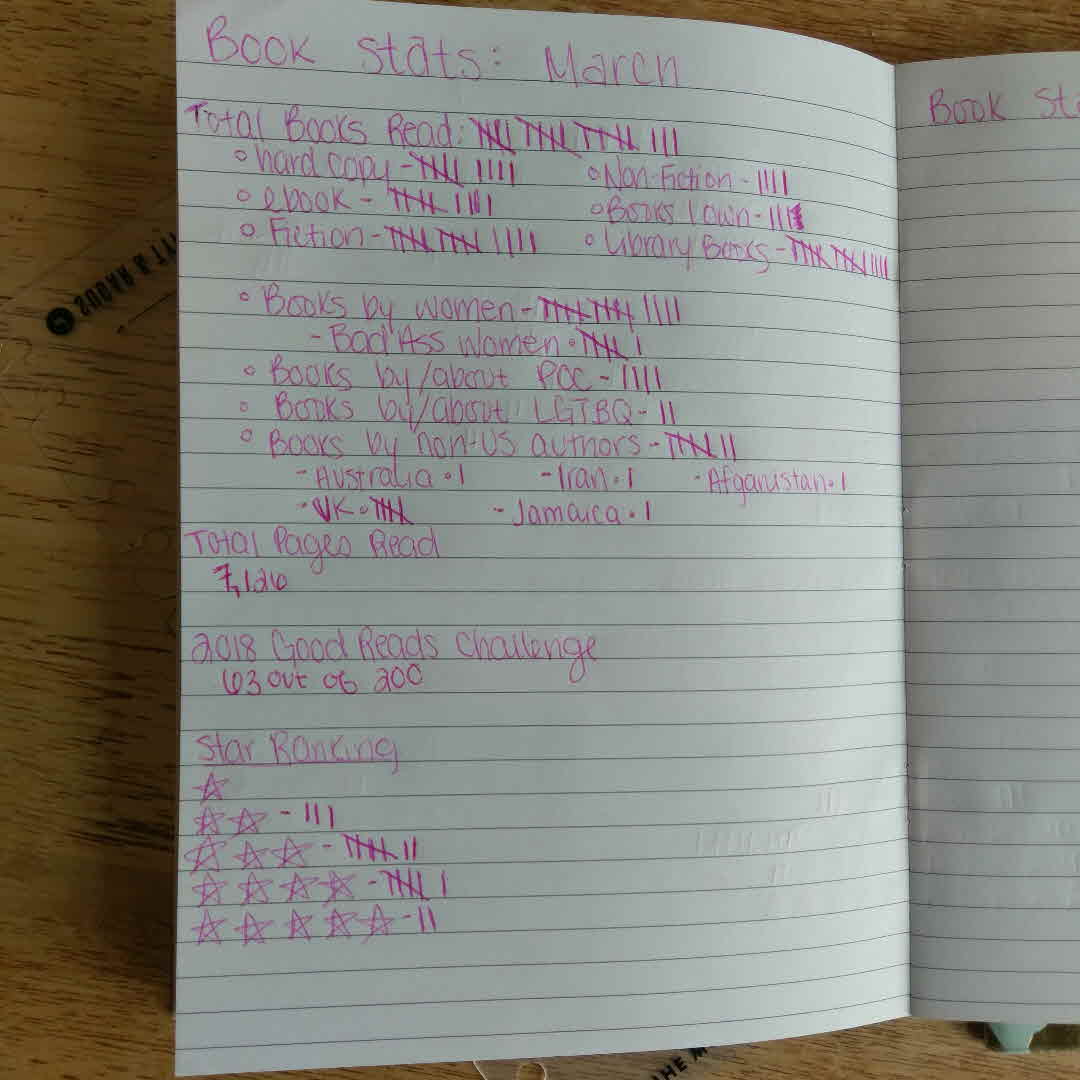 Book Stats: March
Book Sta
Total Books Read: 卌 卌 卌 |||
◦ hard copy - 卌 ||||
◦ Non-Fiction - ||||
◦ ebook - 卌 ||||
◦ Books I own - ||||
◦ Fiction - 卌 卌 ||||
◦ Library Books - 卌 卌 ||||
◦ Books by women - 卌 卌 ||||
- Bad Ass women • 卌 |
◦ Books by/about POC - ||||
◦ Books by/about LGTBQ - ||
◦ Books by non-US authors - 卌 ||
- Australia • | - Iran • | - Afganistan • |
- UK • 卌 - Jamaica • |
Total Pages Read
7,126
2018 Good Reads Challenge
63 out of 200
Star Ranking
☆
☆☆ - |||
☆☆☆ - 卌 ||
☆☆☆☆ - 卌 |
☆☆☆☆☆ - ||
THE